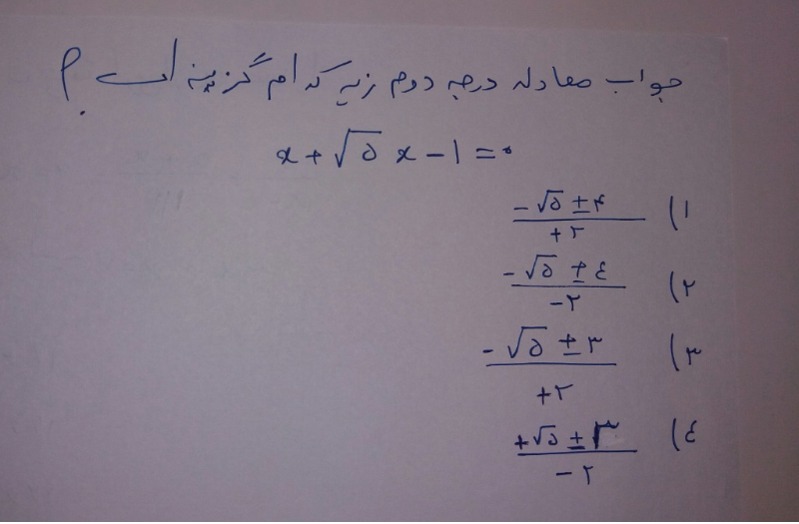 جواب معادله درجه دوم زیر کدام گزینه است ؟
x + √۵ x - ۱ = ۰
۱) (-√۵ ± ۴) / +۲
۲) (-√۵ ± ٤) / -۲
۳) (-√۵ ± ۳) / +۲
٤) (+√۵ ± ۳) / -۲